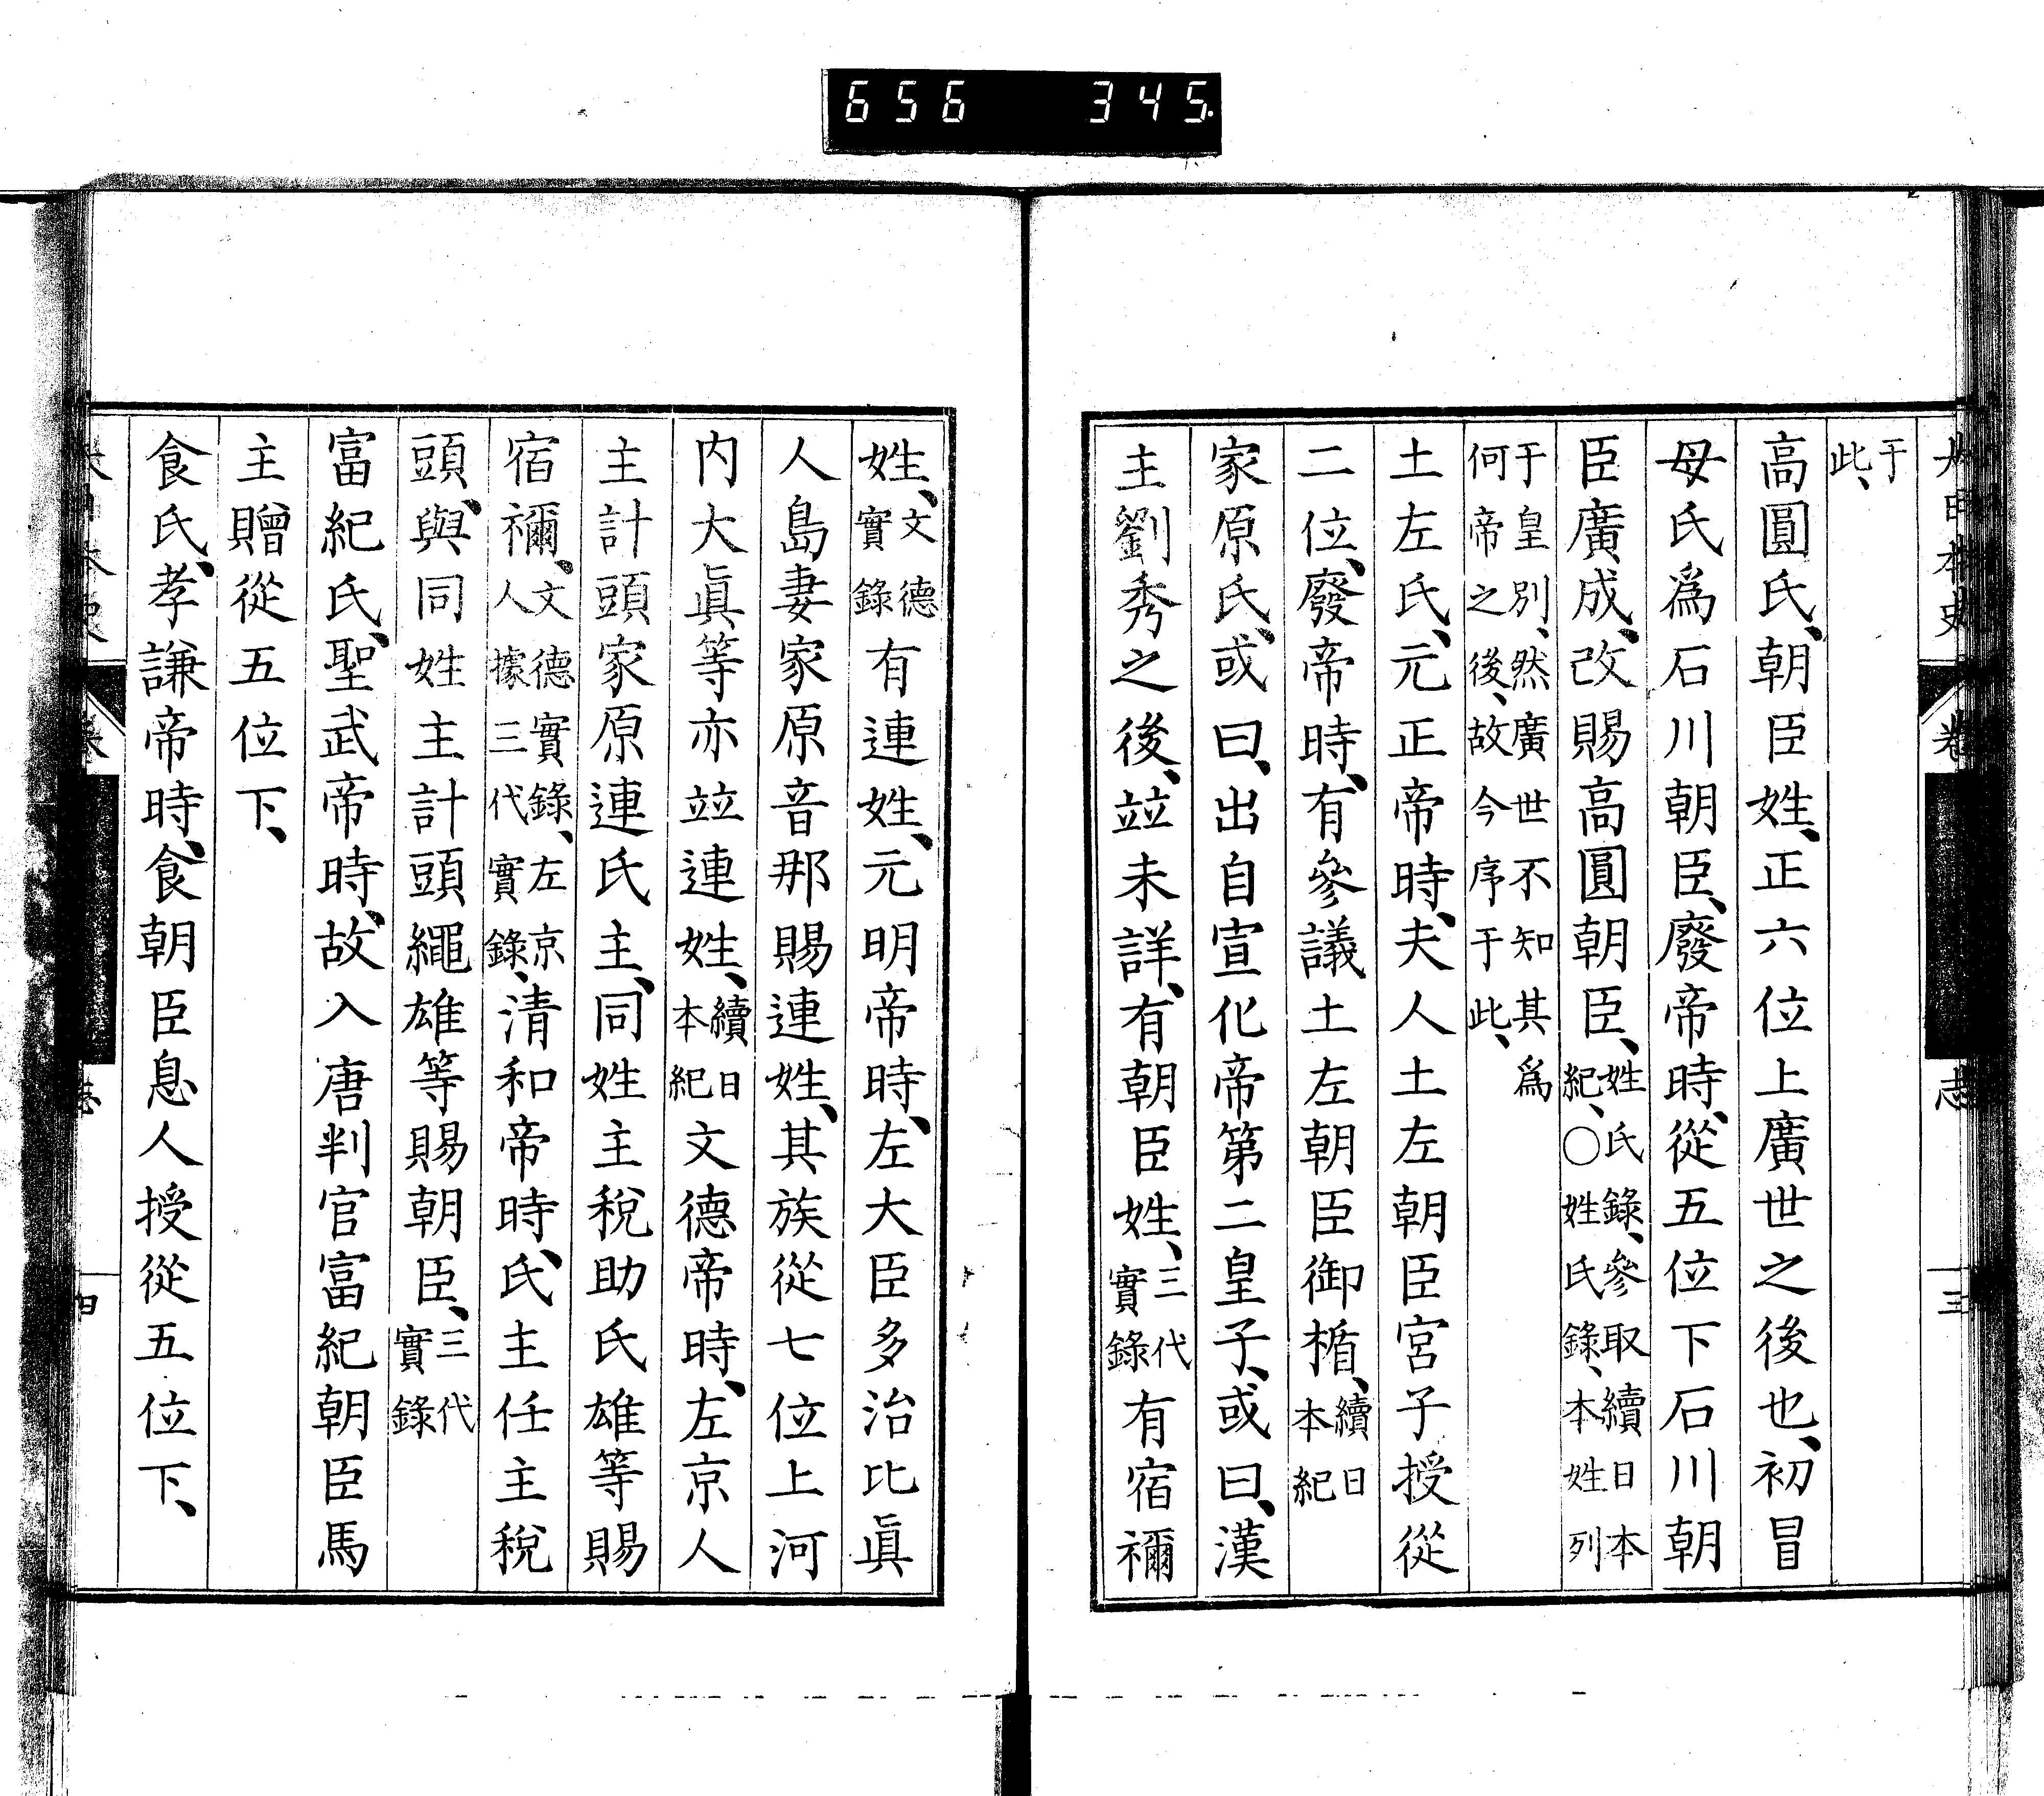 656 345.
大日本史 卷 志 十三
于此、
高圓氏、朝臣姓、正六位上廣世之後也、初冒
母氏爲石川朝臣、廢帝時、從五位下石川朝
臣廣成、改賜高圓朝臣、姓氏錄、參取續日本紀、〇姓氏錄、本姓列
于皇別、然廣世不知其爲何帝之後、故今序于此、
土左氏、元正帝時、夫人土左朝臣宮子授從
二位、廢帝時、有參議土左朝臣御楯、續日本紀
家原氏、或曰、出自宣化帝第二皇子、或曰、漢
主劉秀之後、竝未詳、有朝臣姓、三代實錄有宿禰
姓、文德實錄有連姓、元明帝時、左大臣多治比眞
人島妻家原音那賜連姓、其族從七位上河
内大眞等亦竝連姓、續日本紀文德帝時、左京人
主計頭家原連氏主、同姓主稅助氏雄等賜
宿禰、文德實錄、左京人據三代實錄、清和帝時、氏主任主稅
頭、與同姓主計頭繩雄等賜朝臣、三代實錄
富紀氏、聖武帝時、故入唐判官富紀朝臣馬
主贈從五位下、
食氏、孝謙帝時、食朝臣息人授從五位下、